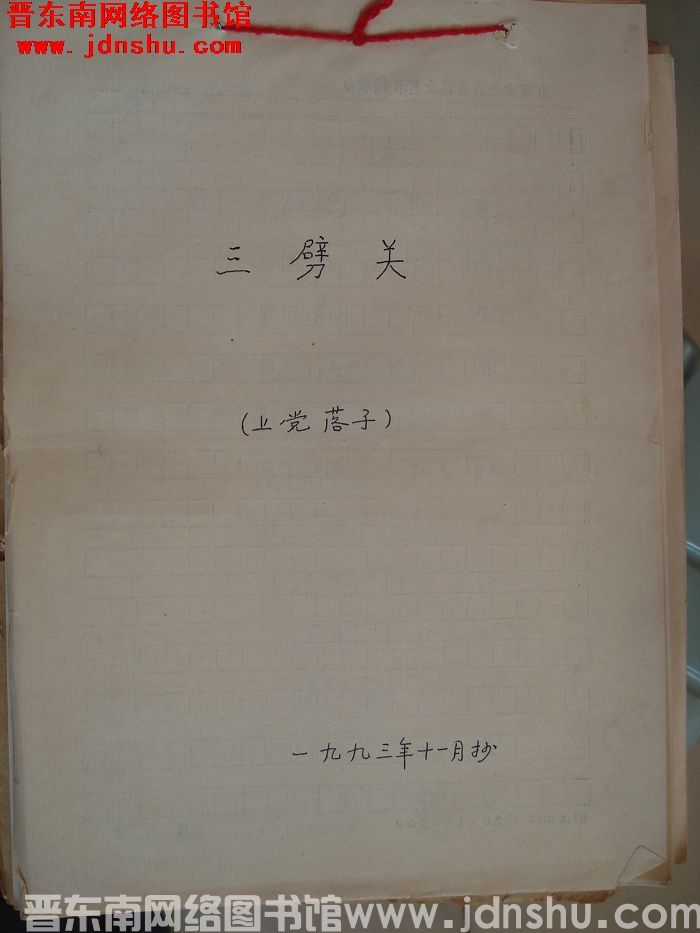 晋东南网络图书馆
www.jdnshu.com
三劈关
(上党落子)
一九九三年十一月抄
晋东南网络图书馆www.jdnshu.com